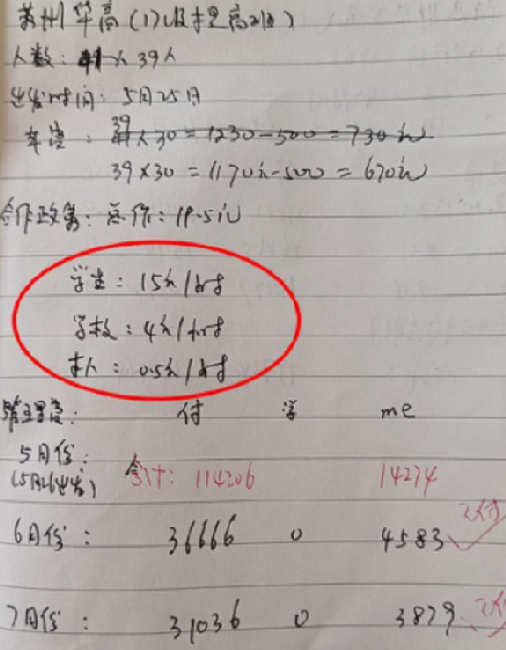 苏州华高(17级提高班)
人数: 41人 39人
出发时间: 5月25日
39
车费: 41人×30=1230-500=730元
39×30=1170元-500=670元
合作政策: 总价: 19.5元
学生: 15元/
学校: 4元/
本人: 0.5元/
付 学 me
5月份:
(5月26出发) 合计: 114206 14274
6月份: 36666 0 4583 已付
7月份: 31036 0 3879 已付